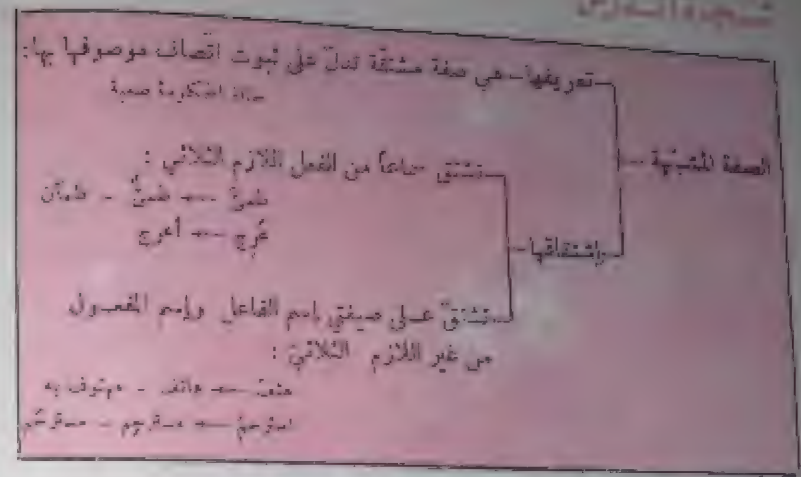 شجرة الدرس
الصفة المشبّهة
تعريفها - هي صفة مشتقّة تدلّ على ثبوت اتّصاف موصوفها بها:
صعبة
إشتقاقها
تشتق سماعاً من الفعل اللازم الثلاثي :
ظمئ ← ظمئ - ظمآن
عَرِج ← أعرج
تشتقّ على صيغتي إسم الفاعل وإسم المفعـول
من غير اللازم الثلاثيّ :
←
استرحم ← مسترحِم - مسترحَم